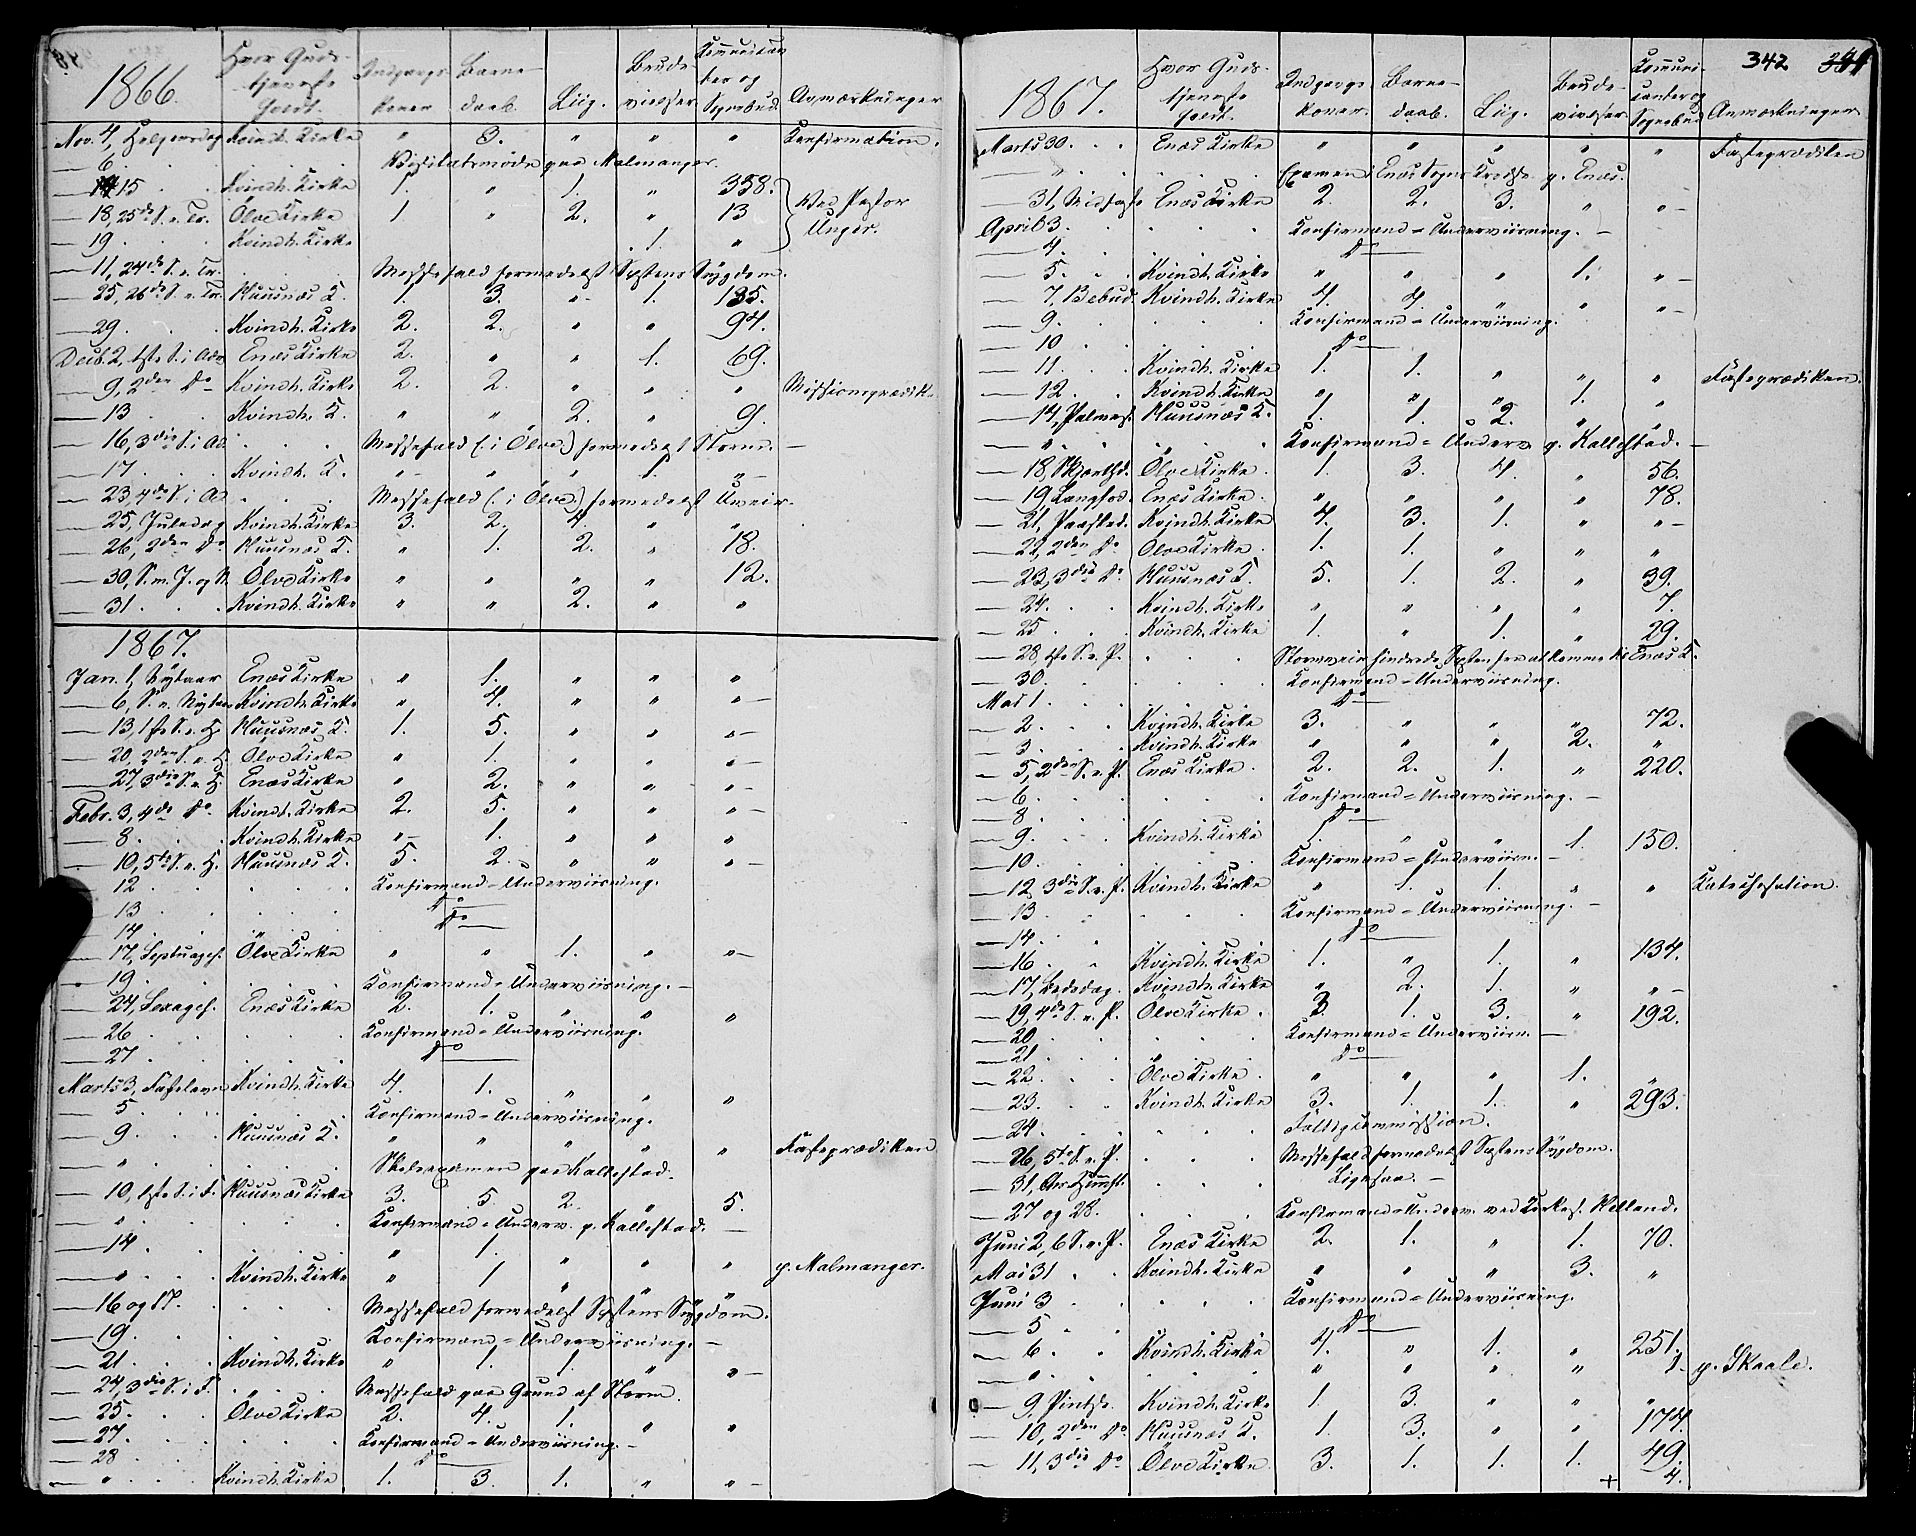 1866. Hvor Guds-tjeneste holdt. Indgangs-koner Barne-daab. Liig. Brude-vielser Kommunikanter og Sognebud. Anmærkninger
Nov. 4, Helgensdag Kvindh. Kirke " 3. " " " Confirmation.
— 6 . . Visitatsmøde paa Malmanger.
— 15 . . Kvindh. Kirke 1. " 1. " 338. Ved Pastor Unger.
— 18, 25de S. e. Tr. Ölve Kirke 1 " 2. " 13
— 19 . . Kvindh. Kirke 1. "
— 11, 24de S. e. Tr. . . Messefald formedelst Præstens Sygdom.
— 25, 26de S. e. Tr. Huusnæs K. 1. 3. " 1. 185.
— 29. . . Kvindh. Kirke 2. 2. " " 94.
Decb. 2, 1ste S. i Adv. Enæs Kirke 2. " " 1. 69.
— 9, 2den Do Kvindh. Kirke 2. 2. " " " Missionsprædik.
— 13 . . Kvindh. K. " " 2. " 9.
— 16, 3die S. i Ad. . . . Messefald (: i Ölve) formedelst Storm. —
— 17 . . Kvindh. K. " " " 1. " —
— 23 4de S. i Ad. . . . Messefald (: i Ölve) formedelst Uveir.
— 25, Juledag Kvindh. Kirke 3. 2. 4. " "
— 26, 2den Do Huusnæs K. " 1. 2. " 18.
— 30, S. m. J. og N. Ölve Kirke " " " " 12.
— 31. . . Kvindh. Kirke " " 2. " "
1867.
Jan. 1, Nytaar Enæs Kirke " 1. " " "
— 6, S. e. Nytaar Kvindh. Kirke " 4. " " " —
— 13, 1ste S. e. H. Huusnæs K. 1. 5. " " " —
— 20, 2den S. e. H. Ölve Kirke " 1. " " " —
— 27, 3die S. e. H. Enæs Kirke " 2. " " " —
Febr. 3, 4de Do Kvindh. Kirke 2. 5. " " " —
— 8 . . Kvindh. Kirke " 1. " " "
— 10, 5te S. e. H. Huusnæs K. 5. 2. " " " —
— 12 . . . . Konfirmand-Underviisning.
— 13 . . . . Do
— 14 . . . . Do
— 17, Septuages. Ölve Kirke " " 1. " " —
— 19 . . . . Konfirmand-Underviisning. —
— 24, Sexages. Enæs Kirke 2. 1. " " "
— 26 . . . . Konfirmand-Underviisning.
— 27 . . . . Do
Marts 3, Fastelavn Kvindh. Kirke 4. 1. " " "
— 5 . . . . Konfirmand-Underviisning.
— 9 . . Huusnæs K. " " " " " Fasteprædiken
— " . . . . Skoleexamen paa Kallestad.
— 10, 1ste S. i F. Huusnæs Kirke 3. 5. 2. " 5.
— " . . . . Konfirmand-Underv. p. Kallestad. —
— 14 . . . . " 1. " " " p. Malmanger.
— " . . Kvindh. Kirke " 1 " " "
— 16 og 17. . . . Messefald formedelst Præstens Sygdom.
— 19 . . . . Konfirmand-Underviisning. —
— 21 . . Kvindh. Kirke " 1. 1. " " —
— 24, 3die S. i F. . . . Messefald paa Grund af Storm.
— 25. . . Ölve Kirke 2. 4. 1. " "
— 27. . . . . Konfirmand-Underviisning. —
— 28 . . . . Do
— " . . Kvindh. Kirke 1. 3. 1. " " —
342
1867. Hvor Guds-tjeneste holdt. Indgangs-koner. Barne-daab. Liig. Brude-vielser Kommuni-kanter og Sognebud Anmærkninger
Marts 30. . . Enæs Kirke " " " " " Fasteprædiken
— " . . . . Examen i Enæs Sogns Kredse p. Enæs.
— 31, Midfaste Enæs Kirke 2. 2. 3. " " —
April 3. . . . . Konfirmand-Underviisning. —
— 4. . . . . Do
— 5. . . Kvindh. Kirke " " " 1. " —
— 7, Bebud. Kvindh. Kirke 4. 4. " " " —
— 9. . . . . Konfirmand-Underviisning.
— 10 . . . . Do
— 11. . . Kvindh. Kirke 1. 1. " " " Fasteprædiken.
— 12. . . Kvindh. Kirke " " " 1. "
— 14, Palmes. Huusnæs K. 1. 1. 2. " "
— " . . . . Konfirmand-Underv. p. Kallestad. —
— 18, Skjærthd. Ölve Kirke 1. 3. 4. " 56.
— 19, Langfred. Enæs Kirke " " " " 78.
— 21, Paasked. Kvindh. Kirke 4. 3. 1. " " —
— 22, 2den Do Ölve Kirke 1. 1. " " "
— 23, 3die Do Huusnæs K. 5. 1. 2. " 39.
— 24. . . Kvindh. Kirke " " " " 7.
— 25 . . Kvindh. Kirke 1. " 1. " 29.
— 28, 1ste S. e. P. . . . Stormveir hindrede Præsten fra at komme til Enæs K.
— 30. . . . . Konfirmand-Underviisning.
Mai 1. . . . . Do
— 2. . . Kvindh. Kirke 3. " " " 72.
— 3. . . Kvindh. Kirke " " " 2. "
— 5, 2den S. e. P. Enæs Kirke 2. 2. 1. " 220.
— 6. . . . . Konfirmand-Underviisning. —
— 8. . . . . Do
— 9. . . Kvindh. Kirke 1. " " 1. 150.
— 10. . . . . Konfirmand-Underviisn. —
— 12, 3die S. e. P. Kvindh. Kirke " 1. 1. " " Katechesation.
— 13 . . . . Konfirmand-Underviisning. —
— 14. . . . . Do
— 16 . . Kvindh. Kirke 1. " 1. " 134.
— 17, Bededag. Kvindh. Kirke " 2. 1. " " —
— 19, 4de S. e. P. Ölve Kirke. 3. 1. 3. " 192.
— 20 . . . . Konfirmand-Underviisn. —
— 21 . . . . Do
— 22. . . Ölve Kirke. " " " 1. "
— 23. . . Kvindh. Kirke 3. 1. 1. " 293.
— 24. . . . . Fattigcommission.
— 26, 5te S. e. P. . . . Messefald formedelst Præstens Sygdom.
— 31, Chr. Himmelf. . . . Ligesaa. —
— 27 og 28. . . . Konfirmand-Underv. ved Kirkes. Helland.
Juni 2, 6 S. e. P. Enæs Kirke 2. 1. " 1. 70.
Mai 31 . . Kvindh. Kirke " " " 3. "
Juni 3 . . . . Konfirmand-Underviisning.
— 5 . . . . Do
— 6 . . Kvindh. Kirke 4. " 1. " 251.
— " . . . . " " " " 1- p. Skaale.
— 9, Pintsd. Kvindh. Kirke 1. 3. " " "
— 10, 2den Do Huusnæs K. 1. 3. " " 174.
— 11, 3die Do Ölve Kirke 3. 1. 1. 1. 49.
+ 4.